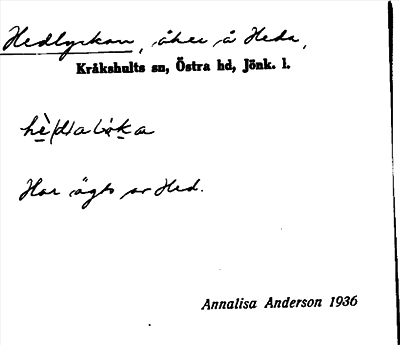 Hedlyckan, åker å Heda,
Kråkshults sn, Östra hd, Jönk. l.
Har ägts av Hed.
Annalisa Anderson 1936